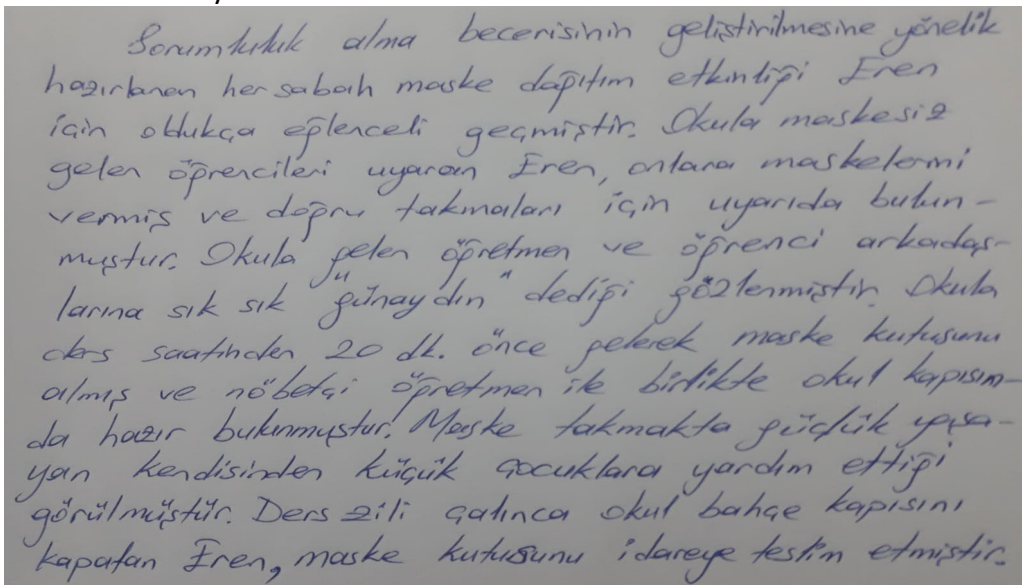 Sorumluluk alma becerisinin geliştirilmesine yönelik
hazırlanan her sabah maske dağıtım etkinliği Eren
için oldukça eğlenceli geçmiştir. Okula maskesiz
gelen öğrencileri uyaran Eren, onlara maskelerini
vermiş ve doğru takmaları için uyarıda bulun-
muştur. Okula gelen öğretmen ve öğrenci arkadaş-
larına sık sık "günaydın" dediği gözlenmiştir. Okula
ders saatinden 20 dk. önce gelerek maske kutusunu
almış ve nöbetçi öğretmen ile birlikte okul kapısın-
da hazır bulunmuştur. Maske takmakta güçlük yaşa-
yan kendisinden küçük çocuklara yardım ettiği
görülmüştür. Ders zili çalınca okul bahçe kapısını
kapatan Eren, maske kutusunu idareye teslim etmiştir.